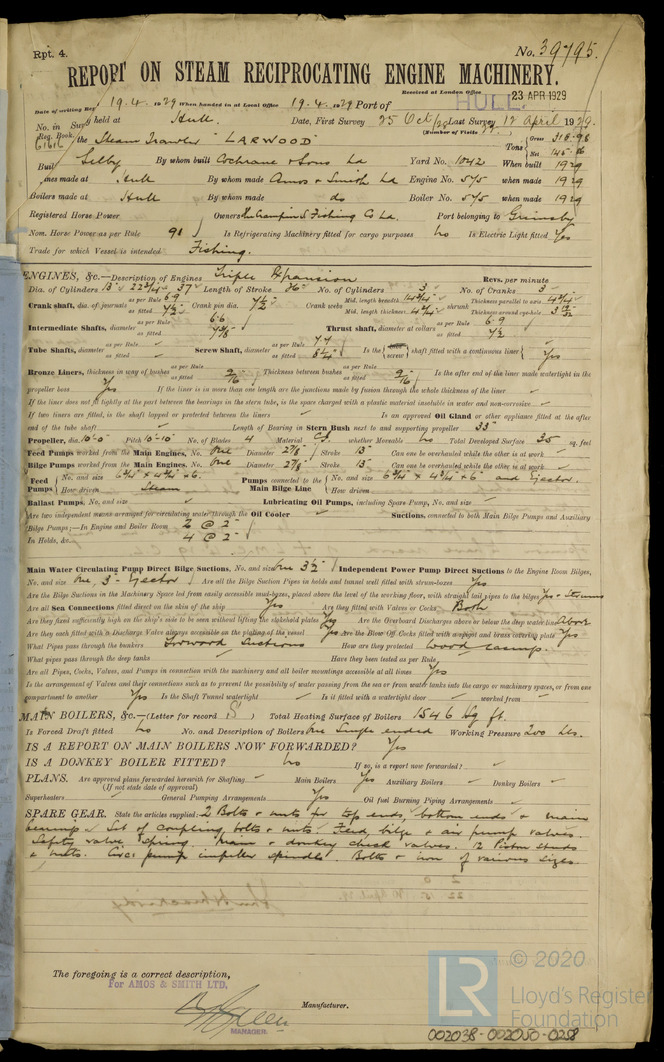 Rpt. 4. No. 39795.
REPORT ON STEAM RECIPROCATING ENGINE MACHINERY.
Received at London Office 23 APR 1929
Date of writing Rep 19.4.1929 When handed in at Local Office 19.4.1929 Port of HULL.
No. in Surv held at Hull. Date, First Survey 25 Oct/28 Last Survey 17 April 1929.
Reg. Book. (Number of Visits
61616 the Steam Trawler "LARWOOD" Tons Gross 318.98 Net
Built Selby By whom built Cochrane & Sons Ld Yard No. 1042 When built 1929
ines made at Hull By whom made Amos & Smith Ld Engine No. 575 when made 1929
Boilers made at Hull By whom made do Boiler No. 575 when made 1929
Registered Horse Power Owners Fishing Co Ld. Port belonging to Grimsby
Nom. Horse Power as per Rule 91 Is Refrigerating Machinery fitted for cargo purposes No Is Electric Light fitted Yes
Trade for which Vessel is intended Fishing.
ENGINES, &c.—Description of Engines Triple Expansion Revs. per minute
Dia. of Cylinders 13" 22¾" 37" Length of Stroke No. of Cylinders 3 No. of Cranks 3
Crank shaft, dia. of journals as per Rule 6.9 as fitted 7½" Crank pin dia. 7½" Crank webs Mid. length breadth Mid. length thickness 4¾" shrunk Thickness parallel to axis 4¾" Thickness around eye-hole
Intermediate Shafts, diameter as per Rule 6.6 as fitted Thrust shaft, diameter at collars as per Rule 6.9 as fitted 7½
Tube Shafts, diameter as per Rule as fitted Screw Shaft, diameter as per Rule 7.4 as fitted 8¼" Is the screw shaft fitted with a continuous liner Yes
Bronze Liners, thickness in way of bushes as per Rule as fitted 9/16 Thickness between bushes as per Rule as fitted 9/16 Is the after end of the liner made watertight in the
propeller boss Yes If the liner is in more than one length are the junctions made by fusion through the whole thickness of the liner
If the liner does not fit tightly at the part between the bearings in the stern tube, is the space charged with a plastic material insoluble in water and non-corrosive
If two liners are fitted, is the shaft lapped or protected between the liners Is an approved Oil Gland or other appliance fitted at the after
end of the tube shaft Length of Bearing in Stern Bush next to and supporting propeller 33"
Propeller, dia. 10'-0" Pitch 10'-10" No. of Blades 4 Material C.I. whether Moveable No Total Developed Surface 35 sq. feet
Feed Pumps worked from the Main Engines, No. One Diameter 2⅞" Stroke 15" Can one be overhauled while the other is at work
Bilge Pumps worked from the Main Engines, No. One Diameter 2⅞" Stroke 15" Can one be overhauled while the other is at work
Feed Pumps No. and size 6¾" × 4¾" × 6. How driven Steam Pumps connected to the Main Bilge Line No. and size 6¾" × 4¾" × 6" and Ejector. How driven
Ballast Pumps, No. and size Lubricating Oil Pumps, including Spare Pump, No. and size
Are two independent means arranged for circulating water through the Oil Cooler Suctions, connected to both Main Bilge Pumps and Auxiliary
(Bilge Pumps;—In Engine and Boiler Room 2 @ 2"
In Holds, &c. 4 @ 2"
Main Water Circulating Pump Direct Bilge Suctions, No. and size One 3½" Independent Power Pump Direct Suctions to the Engine Room Bilges,
No. and size One, 3" Ejector Are all the Bilge Suction Pipes in holds and tunnel well fitted with strum-boxes Yes
Are the Bilge Suctions in the Machinery Space led from easily accessible mud-boxes, placed above the level of the working floor, with straight tail pipes to the bilges Yes & Strums
Are all Sea Connections fitted direct on the skin of the ship Yes Are they fitted with Valves or Cocks Both
Are they fixed sufficiently high on the ship's side to be seen without lifting the stokehold plates Yes Are the Overboard Discharges above or below the deep water line Above
Are they each fitted with a Discharge Valve always accessible on the plating of the vessel Yes Are the Blow Off Cocks fitted with a spigot and brass covering plate Yes
What Pipes pass through the bunkers Forward Suctions How are they protected Wood casings.
What pipes pass through the deep tanks Have they been tested as per Rule
Are all Pipes, Cocks, Valves, and Pumps in connection with the machinery and all boiler mountings accessible at all times Yes
Is the arrangement of Valves and their connections such as to prevent the possibility of water passing from the sea or from water tanks into the cargo or machinery spaces, or from one
compartment to another Yes Is the Shaft Tunnel watertight Is it fitted with a watertight door worked from
MAIN BOILERS, &c.—(Letter for record S) Total Heating Surface of Boilers 1546 sq ft.
Is Forced Draft fitted No No. and Description of Boilers One Single ended Working Pressure 200 lbs.
IS A REPORT ON MAIN BOILERS NOW FORWARDED? Yes
IS A DONKEY BOILER FITTED? No If so, is a report now forwarded?
PLANS. Are approved plans forwarded herewith for Shafting Main Boilers Yes Auxiliary Boilers Donkey Boilers
(If not state date of approval)
Superheaters General Pumping Arrangements Yes Oil fuel Burning Piping Arrangements
SPARE GEAR. State the articles supplied:— 2 Bolts & nuts for top ends, bottom ends & main
bearings. Set of coupling bolts & nuts. Feed, bilge & air pump valves.
Safety valve spring. Main & donkey check valves. 12 Piston studs
& nuts. Circ: pump impeller spindle. Bolts & iron of various sizes.
The foregoing is a correct description,
For AMOS & SMITH LTD.
Manufacturer.
MANAGER
LR © 2020
Lloyd's Register
Foundation
002038-002050-0258